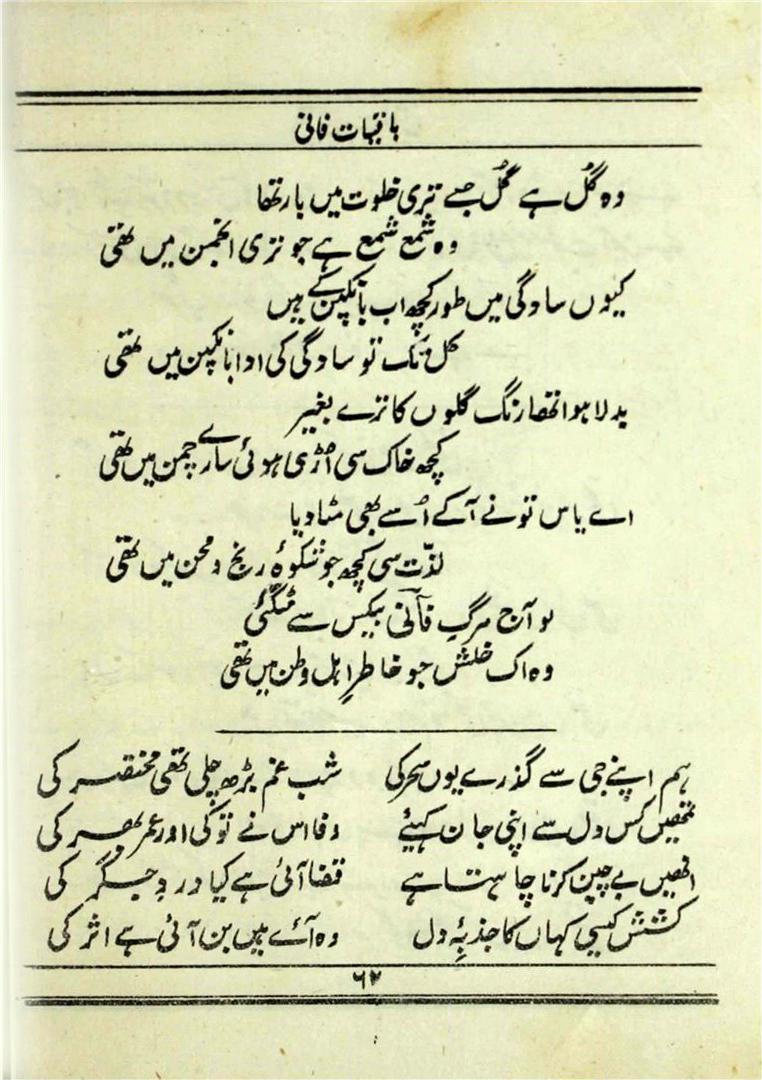 باقیات فانی
وہ گُل ہے گُل جسے تری خلوت میں بار تھا
وہ شمع شمع ہے جو تری انجمن میں تھی
کیوں سادگی میں طور کچھ اب بانکپن کے ہیں
کل تک تو سادگی کی ادا بانکپن میں تھی
بدلا ہوا تھا رنگ گلوں کا ترے بغیر
کچھ خاک سی اُڑی ہوئی سارے چمن میں تھی
اے یاس تو نے آکے اُسے بھی مٹا دیا
لذّت سی کچھ جو شکوۂ رنج و محن میں تھی
لو آج مرگِ فانیؔ بیکس سے مٹ گئی
وہ اک خلش جو خاطرِ اہل وطن میں تھی
ہم اپنے جی سے گذرے یوں سحر کی شب غم بڑھ چلی تھی مختصر کی
تمھیں کس دل سے اپنی جان کہیئے وفا اس نے تو کی اور عمر بھر کی
انھیں بے چین کرنا چاہتا ہے قضا آئی ہے کیا دردِ جگر کی
کشش کیسی کہاں کا جذبۂ دل وہ آئے ہیں بن آئی ہے اثر کی
۶۲